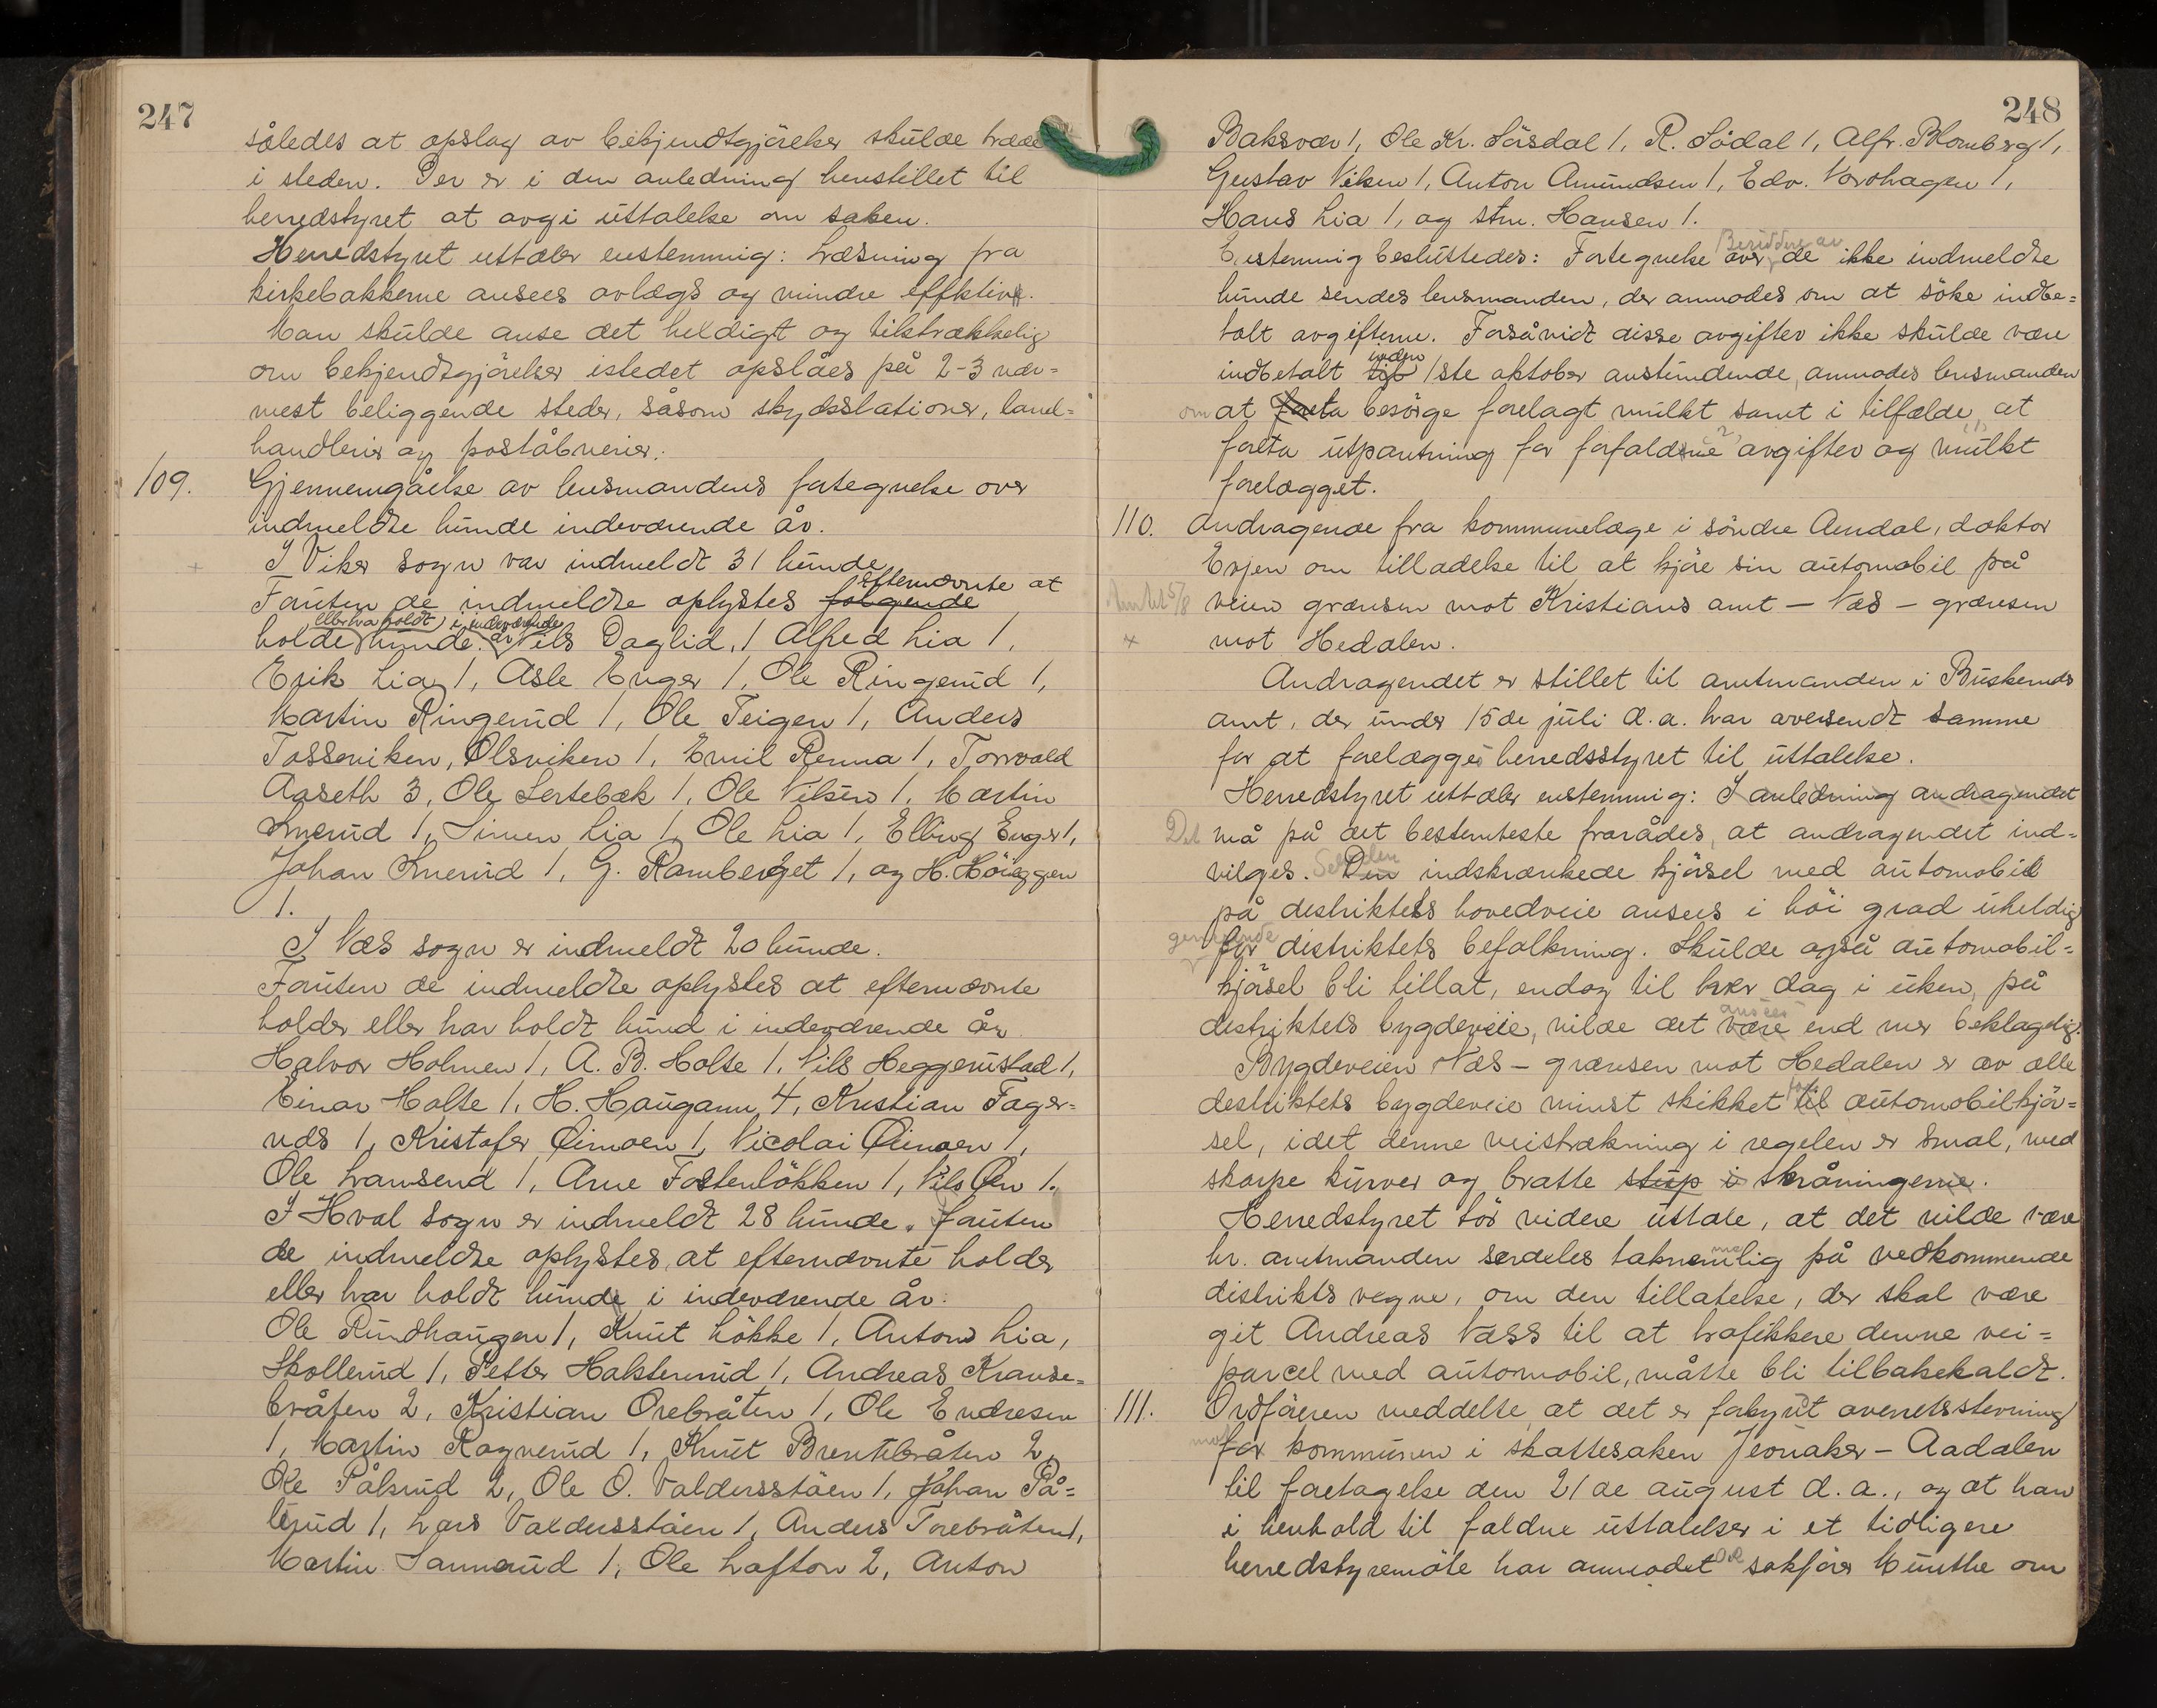 247
således at opslag av bekjendtgjörelser skulde træde
i steden. Der er i den anledning henstillet til
herredstyret at avgi uttalelse om saken.
Herredstyret uttaler enstemmig: Læsning fra
kirkebakkerne ansees avlægs og mindre effktiv.
Man skulde anse det heldigt og tilstrækkelig
om bekjendtgjörelser istedet opslåes på 2-3 nær=
mest beliggende steder, såsom skydsstationer, land=
handlerier og poståbnerier.
109. Gjennemgåelse av lensmandens fortegnelse over
indmeldte hunde indeværende år.
I Viker sogn var indmeldt 31 hunde
Foruten de indmeldte oplystes følgende efternævnte at
holde eller ha holdt hunde i indeværende år Nils Daglid, 1 Alfred Lia 1,
Erik Lia 1, Asle Enger 1, Ole Ringerud 1,
Martin Ringerud 1, Ole Teigen 1, Anders
Tosseviken, Olsviken 1, Emil Renna 1, Torvald
Aaseth 3, Ole Sertebæk 1, Ole Vilsen 1, Martin
Smerud 1, Simen Lia 1, Ole Lia 1, Elling Enger 1,
Johan Smerud 1, G. Ramberget 1, og H. Höiaggen
1.
I Næs sogn er indmeldt 20 hunde.
Foruten de indmeldte oplystes at efternævnte
holder eller har holdt hund i indeværende år
Halvor Holmen 1, A. B. Holte 1, Nils Heggerustad 1,
Einar Holte 1, H. Haugann 4, Kristian Fager=
nds 1, Kristofer Öimoen 1, Nicolai Öimoen 1,
Ole Transend 1, Arne Fostenlökken 1, Nils Öen 1.
I Hval sogn er indmeldt 28 hunde. Foruten
de indmeldte oplystes, at efternævnte holder
eller har holdt hunde i indeværende år:
Ole Rundhaugen 1, Knut Lökke 1, Anton Lia,
Skollerud 1, Petter Haksterud 1, Andreas Kranse=
bråten 2, Kristian Orebråten 1, Ole Endresen
1, Martin Ragnerud 1, Knut Brentebråten 2,
Ole Pålsrud 2, Ole O. Valdersstöen 1, Johan På=
lsrud 1, Lars Valdersstöen 1, Anders Torebråten 1,
Martin Sannerud 1, Ole Lafton 2, Anton
248
Baksvær 1, Ole Kr. Sörsdal 1, R. Södal 1, Alfr. Blomberg 1,
Gustav Viken 1, Anton Amundsen 1, Edv. Vorohagen 1,
Hans Lia 1, og stm. Hansen 1.
Enstemmig besluttedes: Fortegnelse over Besiddere av de ikke indmeldte
hunde sendes lensmanden, der anmodes om at söke indbe=
talt avgifterne. Forsåvidt disse avgifter ikke skulde være
indbetalt til inden 1ste oktober anstundende, anmodes lensmanden
om at foreta besörge forelagt mulkt samt i tilfælde at
foreta utpantning for forfaldne avgifter og mulkt
forelægget.
110. Andragende fra kommunelæge i söndre Aurdal, doktor
Evjen om tilladelse til at kjöre sin automobil på
veien grænsen mot Kristians amt – Næs – grænsen
mot Hedalen.
Andragendet er stillet til amtmanden i Buskeruds
amt, der under 15de juli d.a. har oversendt samme
for at forelægges herredsstyret til uttalelse.
Herredstyret uttaler enstemmig: I anledning andragendet
Det må på det bestemteste frarådes, at andragendet ind=
vilges. Selv den Den indskrænkede kjörsel med automobil
på distriktets hovedveie ansees i höi grad uheldig
for distriktets befolkning. Skulde også automobil=
kjörsel bli tillat, endog til hver dag i uken, på
distriktets bygdeveie, vilde det være ansees end mer beklagelig.
Bygdeveien Næs – grænsen mot Hedalen er av alle
distriktets bygdeveie minst skikket til for automobilkjö=
sel, idet denne veistrækning i regelen er smal, med
skarpe kurver og bratte stup i skråningerne.
Herredstyret tör videre uttale, at det vilde være
hr. amtmanden særdeles taknemlig på vedkommende
distrikts vegne, om den tillatelse, der skal være
git Andreas Næss til at trafikkere denne vei=
parcel med automobil, måtte bli tilbakekaldt.
111. Ordföreren meddelte at det er forkynt overretsstevning
mot for kommunen i skattesaken Jevnaker – Aadalen
til foretagelse den 21de august d.a., og at han
i henhold til faldne uttalelser i et tidligere
herredstyremöte har anmodet O.R. sakförer Munthe om